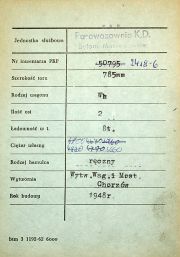 Jednostka służbowa
Parowozownia K.D.
Nr inwentarza PKP 50795 2418-6
Szerokość toru 785mm
Rodzaj wagonu Wh
Ilość osi 2
Ładowność w t. 8t.
Ciężar własny
Rodzaj hamulca ręczny
Wytwórnia Wytw.Wag.i Most. Chorzów
Rok budowy 1948r